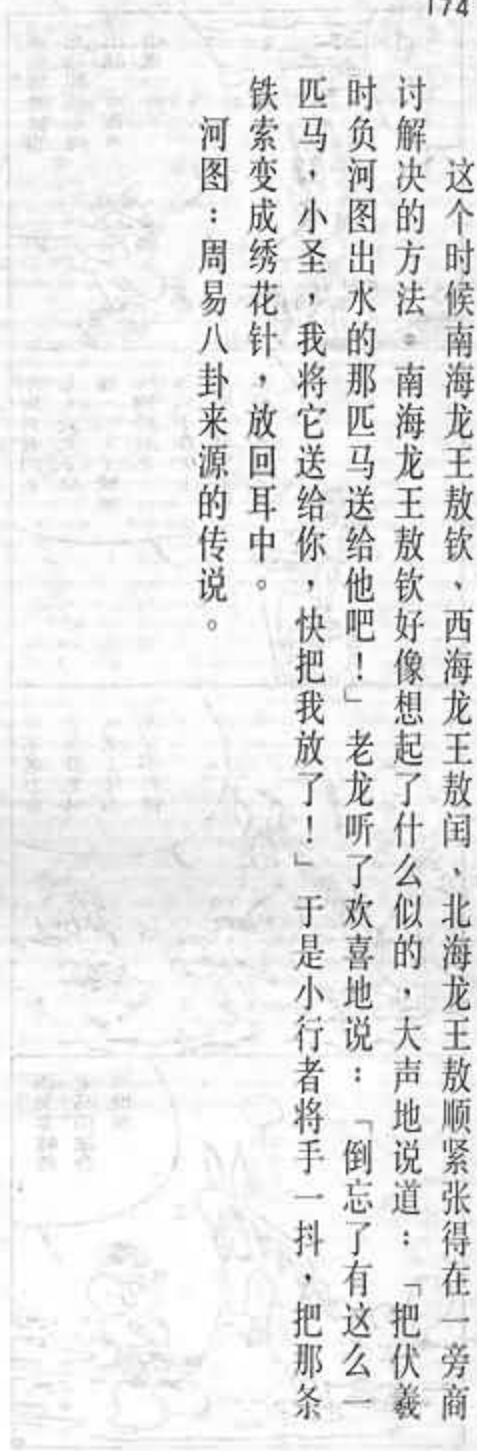 174
这个时候南海龙王敖钦、西海龙王敖闰、北海龙王敖顺紧张得在一旁商
讨解决的方法。南海龙王敖钦好像想起了什么似的，大声地说道：「把伏羲
时负河图出水的那匹马送给他吧！」老龙听了欢喜地说：「倒忘了有这么一
匹马，小圣，我将它送给你，快把我放了！」于是小行者将手一抖，把那条
铁索变成绣花针，放回耳中。
河图：周易八卦来源的传说。